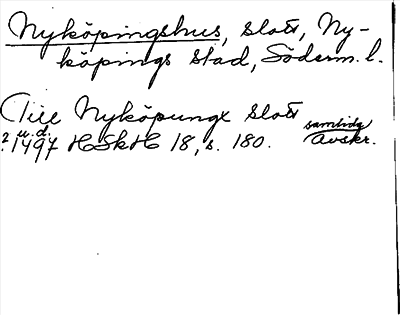 Nyköpingshus, slott, Ny-
köpings stad, Söderm. l.
Till Nyköpungx slott
u.d. samtida
? 1497 HSkH 18, s. 180. Avskr.